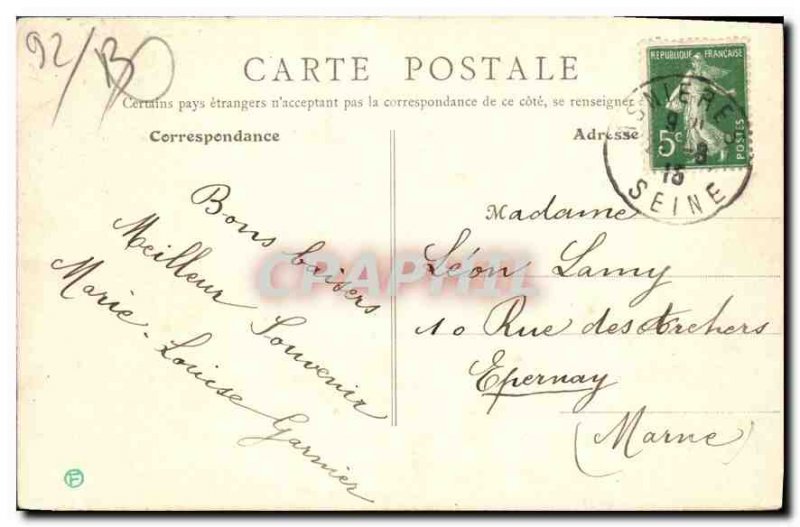 92/B
CARTE POSTALE
Certains pays étrangers n'acceptant pas la correspondance de ce côté, se renseigner
Correspondance
Adresse
REPUBLIQUE FRANÇAISE
5c
POSTES
ASNIERES
SEINE
13
Bons baisers
Meilleur Souvenir
Marie-Louise Garnier
Madame
Léon Lamy
10 Rue des Archers
Epernay
(Marne)
CPAPHIL
F